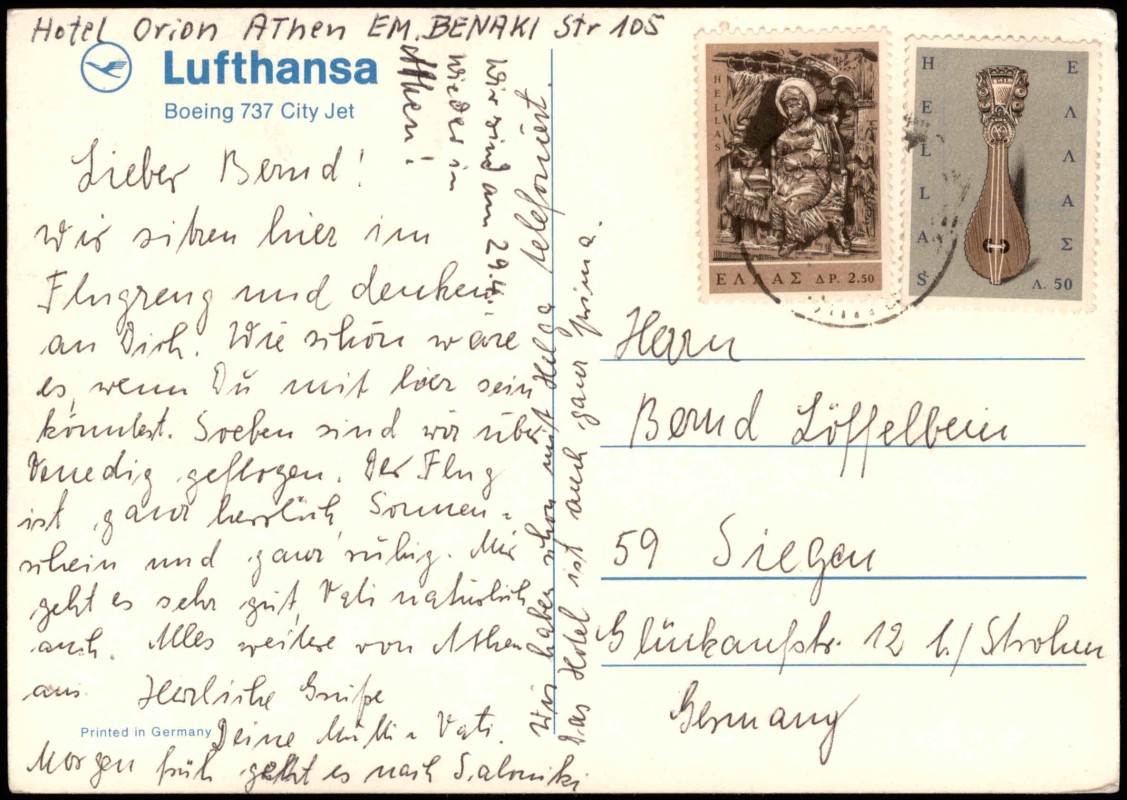 Hotel Orion AThen EM. BENAKI Str 105
Lufthansa
Boeing 737 City Jet
Lieber Bernd!
Wir sitzen hier im
Flugzeug und denken
an Dich. Wie schön wäre
es, wenn Du mit hier sein
könntest. Soeben sind wir über
Venedig geflogen. Der Flug
ist ganz herrlich, Sonnen=
schein und ganz ruhig. Mir
geht es sehr gut, Vati natürlich
auch. Alles weitere von Athen
aus. Herzliche Grüße
Deine Mutti u Vati.
Morgen früh geht es nach Saloniki
Wir sind am 29.4.
wieder in
Athen!
Wir haben schon mit Helga telefoniert.
Das Hotel ist auch ganz prima.
Printed in Germany
HELLAS
ΕΛΛΑΣ ΔΡ. 2.50
HELLAS
ΕΛΛΑΣ
Λ. 50
Herrn
Bernd Löffelbein
59 Siegen
Glückaufstr. 12 b/
Germany